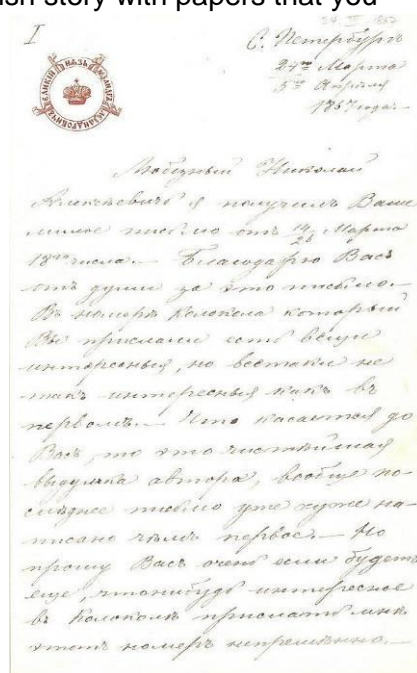 ish story with papers that you
I
ВЕЛИКІЙ КНЯЗЬ АЛЕКСАНДРОВИЧЪ
С. Петербургъ
27го Марта
5го Апрѣля
1867 года.
Любезный Николай
Алексѣевичъ я получилъ Ваше
милое письмо отъ 14/26 Марта
18го числа. — Благодарю Васъ
отъ души за это письмо. —
Въ номерѣ Колокола который
Вы прислали есть вещи
интересныя, но всетаки не
такъ интересныя какъ въ
первомъ. — Что касается до
Васъ, то это чистѣйшая
выдумка автора, вообще по-
слѣднее письмо уже хуже на-
писано чѣмъ первое. — Но
прошу Васъ очень если будетъ
еще, чтонибудь интересное
въ Колоколѣ прислать мнѣ
этотъ номеръ непремѣнно. —